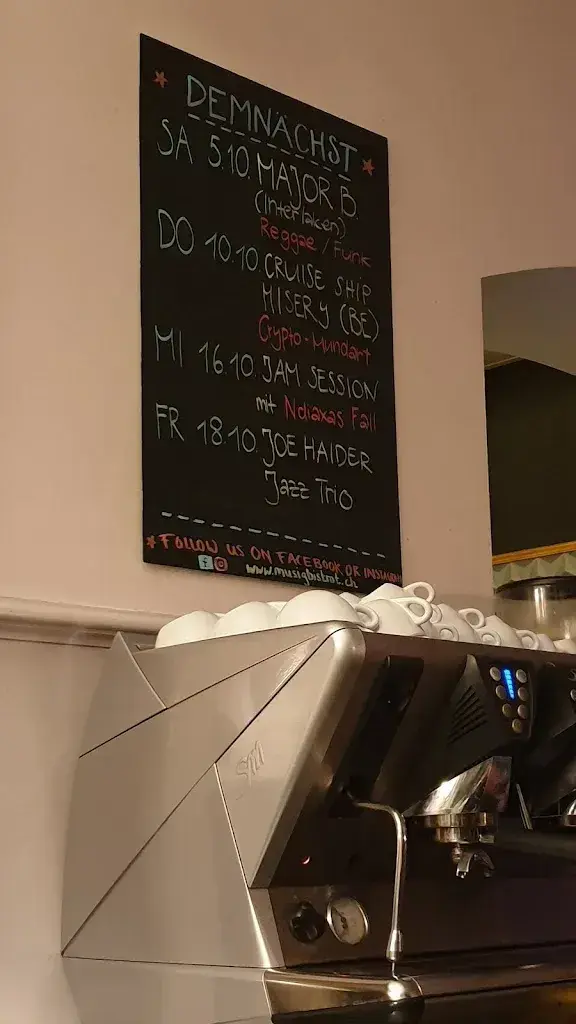 DEMNÄCHST
SA 5.10. MAJOR B.
(Interlaken)
Reggae / Funk
DO 10.10. CRUISE SHIP
MISERY (BE)
Crypto-Mundart
MI 16.10. JAM SESSION
mit Ndiaxas Fall
FR 18.10. JOE HAIDER
Jazz Trio
FOLLOW US ON FACEBOOK OR INSTAGRAM
www.musigbistrot.ch
sm